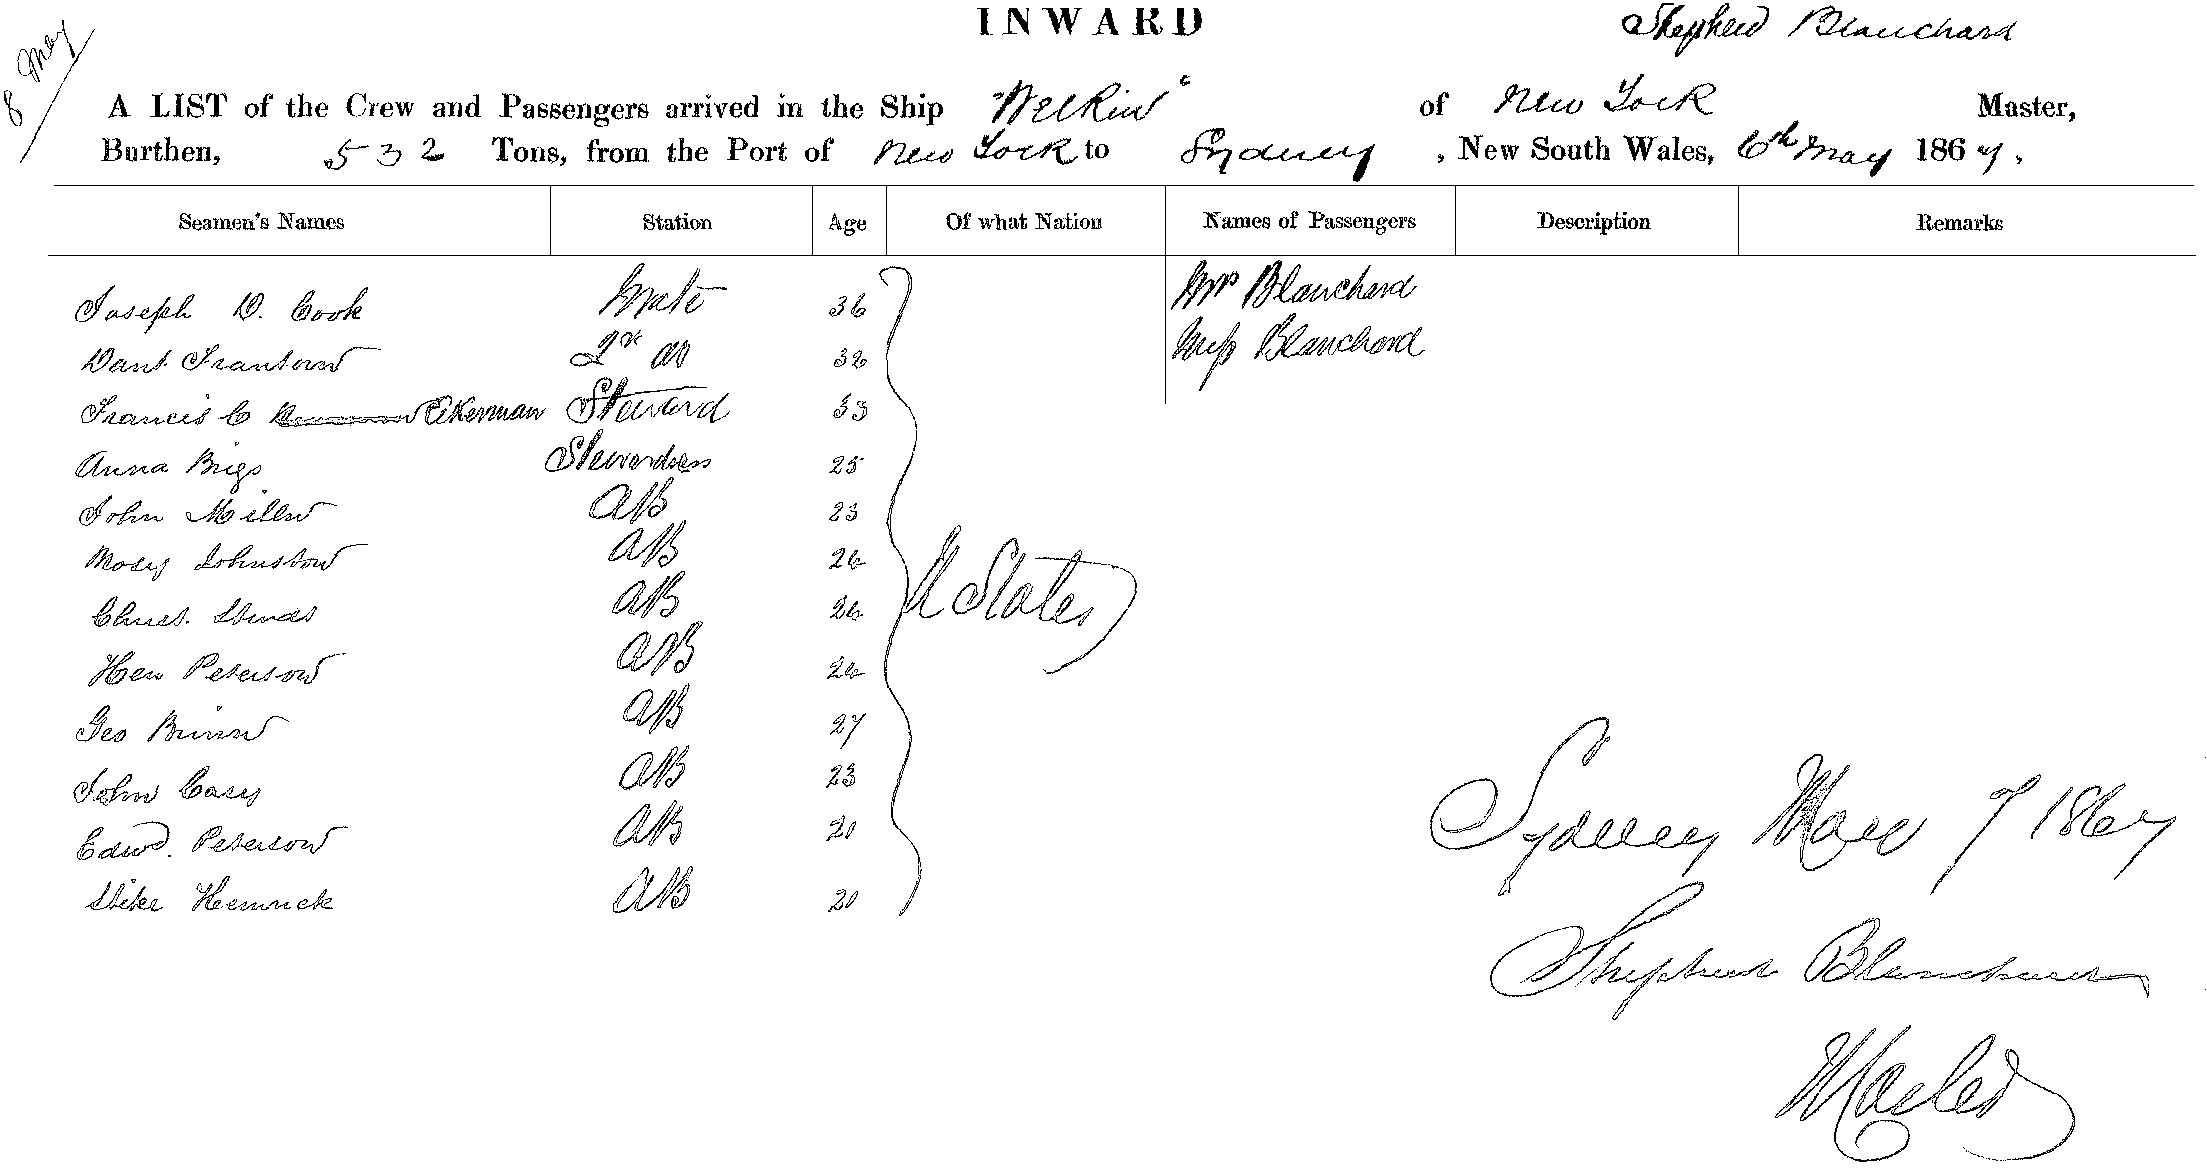 INWARD
Shepherd Blanchard
8 May
A LIST of the Crew and Passengers arrived in the Ship "Welkin" of New York Master,
Burthen, 532 Tons, from the Port of New York to Sydney, New South Wales, 6th May 1867,
Seamen's Names Station Age Of what Nation Names of Passengers Description Remarks
Joseph D. Cook Mate 36 Mrs Blanchard
2nd do 32 Miss Blanchard
Francis C Akerman Steward 33
Anna Brigs Stewardess 25
John Miller AB 23
Moses Johnston AB 26
AB 26 U States
Hen Peterson AB 26
Geo AB 27
John Casey AB 23
Edwd. Peterson AB 20
AB 20
Sydney May 7 1867
Shepherd Blanchard
Master